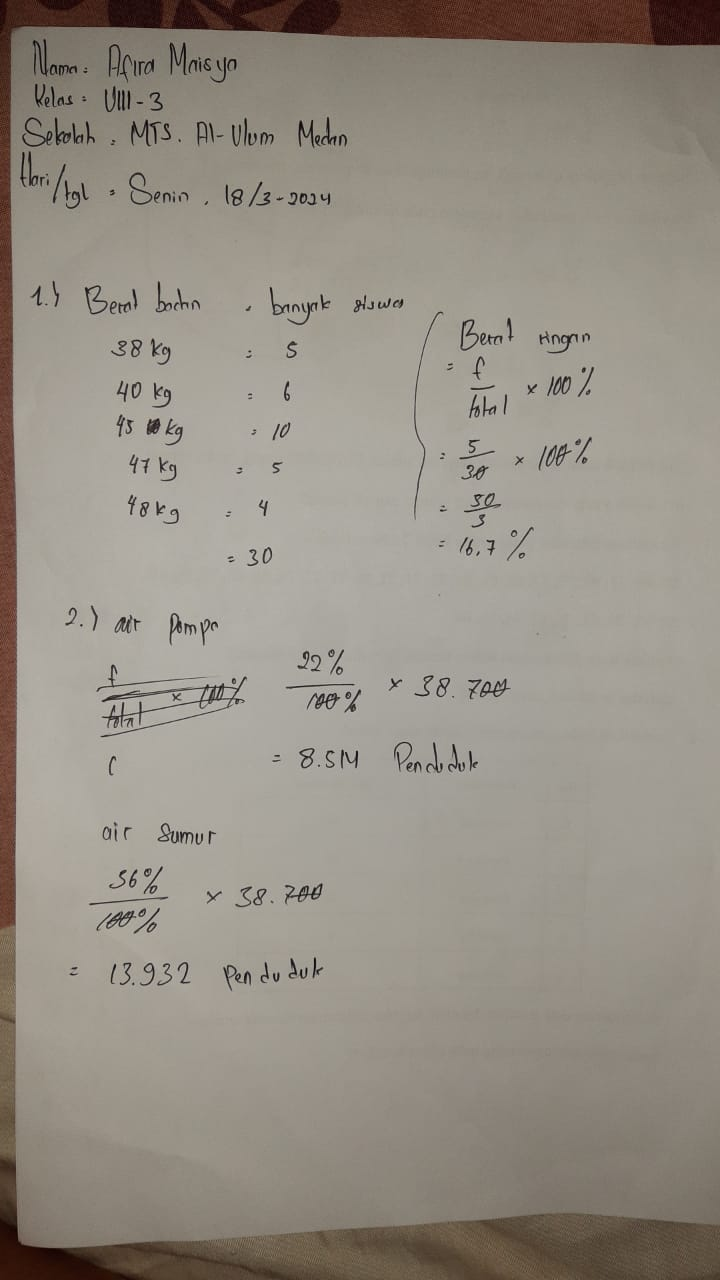 Nama : Afira Maisya
Kelas : VIII - 3
Sekolah : MTS. Al-Ulum Medan
Hari/tgl : Senin, 18/3-2024
1.) Berat badan : banyak siswa
38 kg : 5
40 kg : 6
45 kg : 10
47 kg : 5
48 kg = 4
= 30
Berat ringan
= f/total x 100%
= 5/30 x 100%
= 50/3
= 16,7 %
2.) air Pompa
f/total x 100%
22%/100% x 38.700
(
= 8.514 Penduduk
air Sumur
36%/100% x 38.700
= 13.932 Penduduk